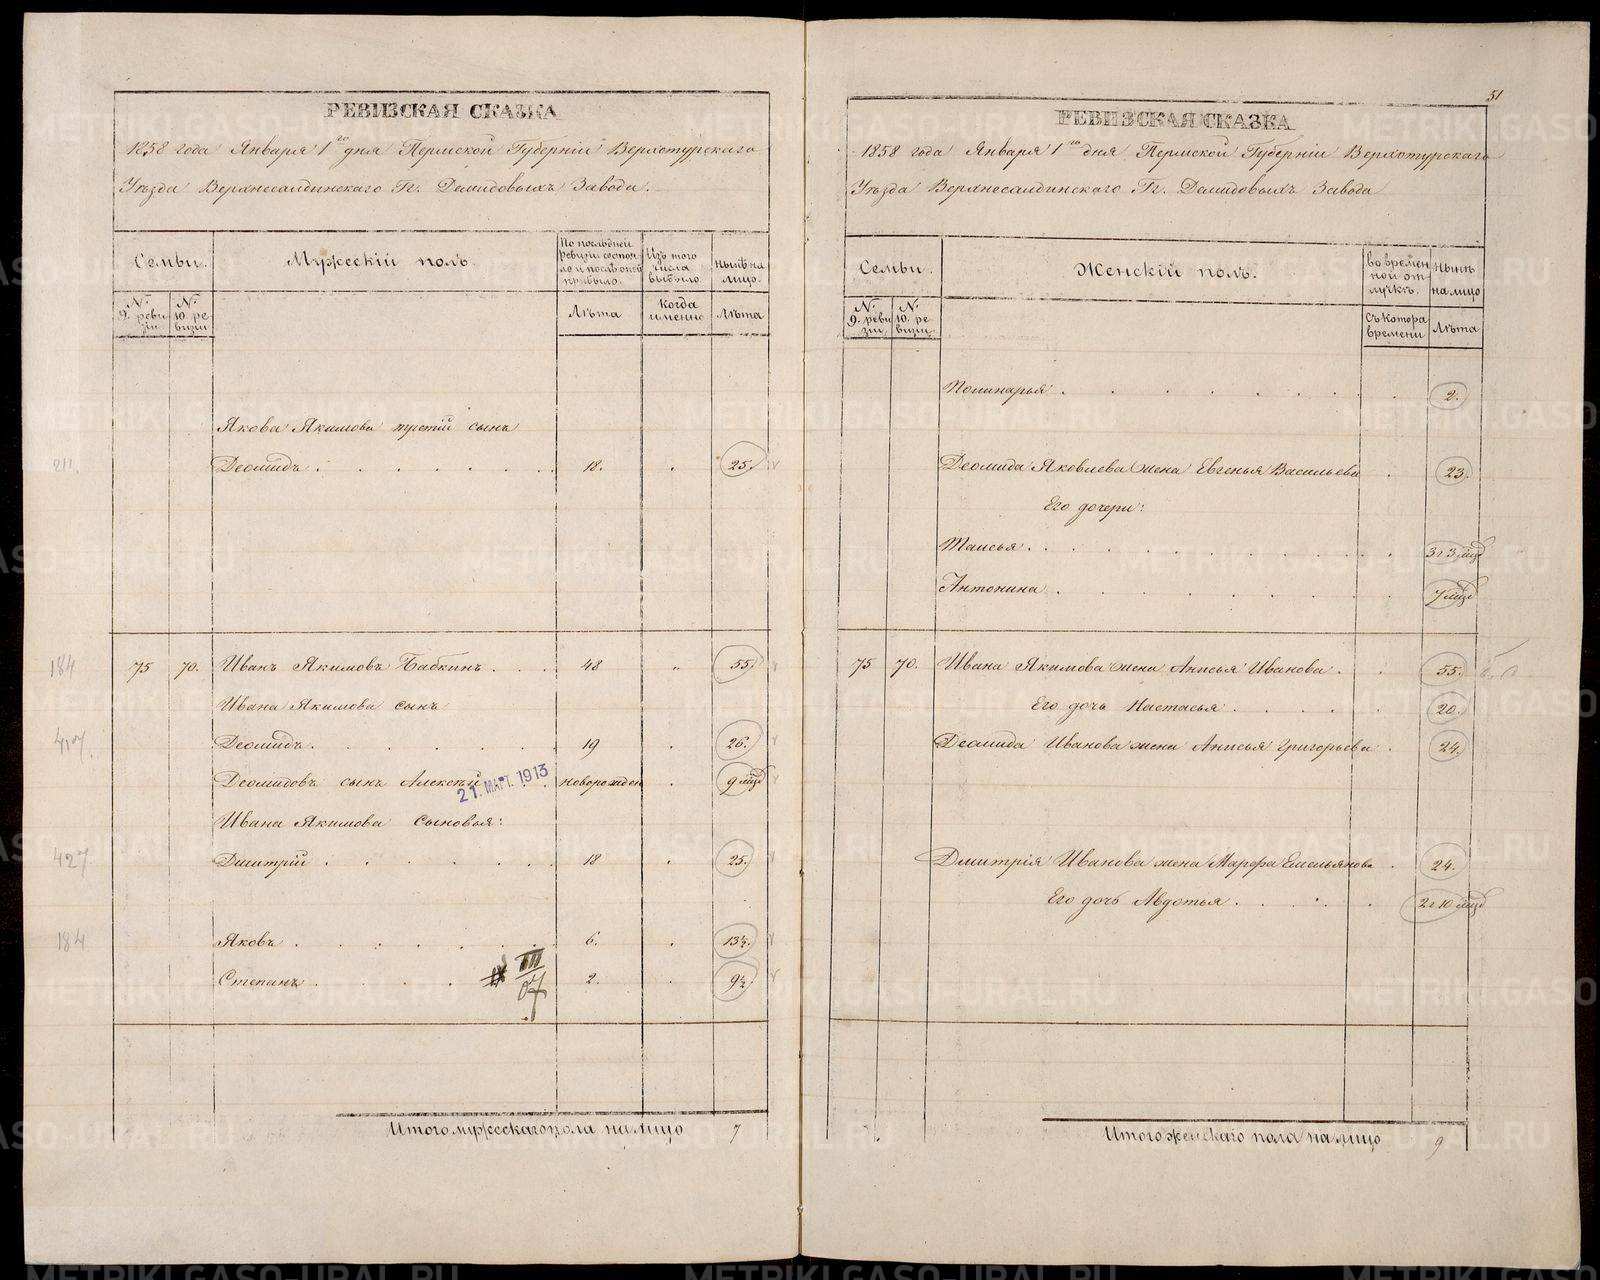 РЕВИЗСКАЯ СКАЗКА
1858 года Января 1го дня Пермской Губерніи Верхотурскаго
Уѣзда Верхнесалдинскаго Гг. Демидовыхъ Завода.
Семьи.
Мужескій полъ.
По послѣдней ревизіи состояло и послѣ оной прибыло.
Изъ того числа выбыло.
нынѣ на лицо.
№ 9. ревизіи
№ 10. ревизіи
Лѣта
Когда именно
Лѣта
Якова Якимова третій сынъ
211.
Деомидъ 18. 25.
184 75 70. Иванъ Якимовъ Бабкинъ 48 55.
Ивана Якимова сынъ
Деомидъ 19 26.
Деомидовъ сынъ Алексѣй новорожден 9 мцд
21. МАРТ. 1913
Ивана Якимова сыновья:
427 Дмитрій 18 25.
184 Яковъ 6. 13½
Степанъ 2. 9½
III
07
Итого мужескаго пола на лицо 7
51
РЕВИЗСКАЯ СКАЗКА
1858 года Января 1го дня Пермской Губерніи Верхотурскаго
Уѣзда Верхнесалдинскаго Гг. Демидовыхъ Завода
Семьи.
Женскій полъ.
во временной отлучкѣ.
Нынѣ на лицо
№ 9. ревизіи
№ 10. ревизіи
Съ котора времени
Лѣта
Полинарья 2.
Деомида Яковлева жена Евгенья Васильева 23.
Его дочери:
Таисья 3 г 3 мцд
Антонина 7 мцд
75 70. Ивана Якимова жена Анисья Иванова 55.
Его дочь Настасья 20.
Деомида Иванова жена Анисья Григорьева 24.
Дмитрія Иванова жена Марфа Емельянова 24.
Его дочь Авдотья 2 г 10 мцд
Итого женскаго пола на лицо 9
METRIKI.GASO-URAL.RU